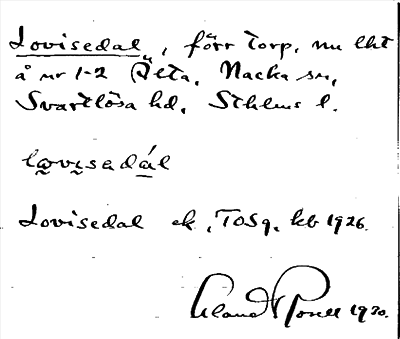 Lovisedal, förr torp, nu lht
å nr 1-2 Älta, Nacka sn,
Svartlösa hd, Sthlms l.
lovisedál
Lovisedal ek, TOSq, kb 1926.
1930.